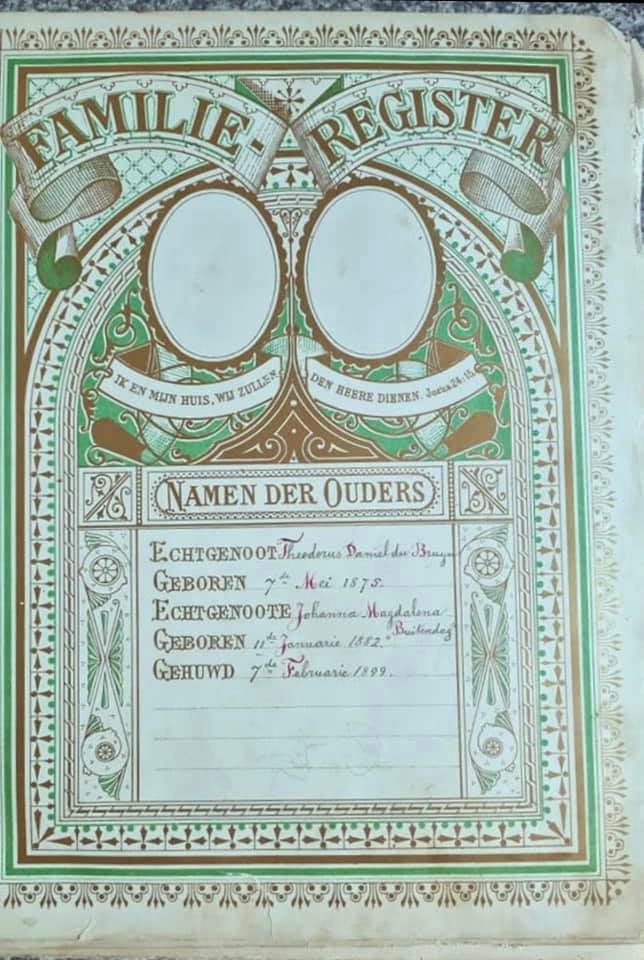 FAMILIE-REGISTER
IK EN MIJN HUIS, WIJ ZULLEN DEN HEERE DIENEN. Jozua 24:15.
NAMEN DER OUDERS
ECHTGENOOT Theodorus Daniel du Bruyn
GEBOREN 7de Mei 1875.
ECHTGENOOTE Johanna Magdalena
"Buitendag"
GEBOREN 11de Januarie 1882.
GEHUWD 7de Februarie 1899.